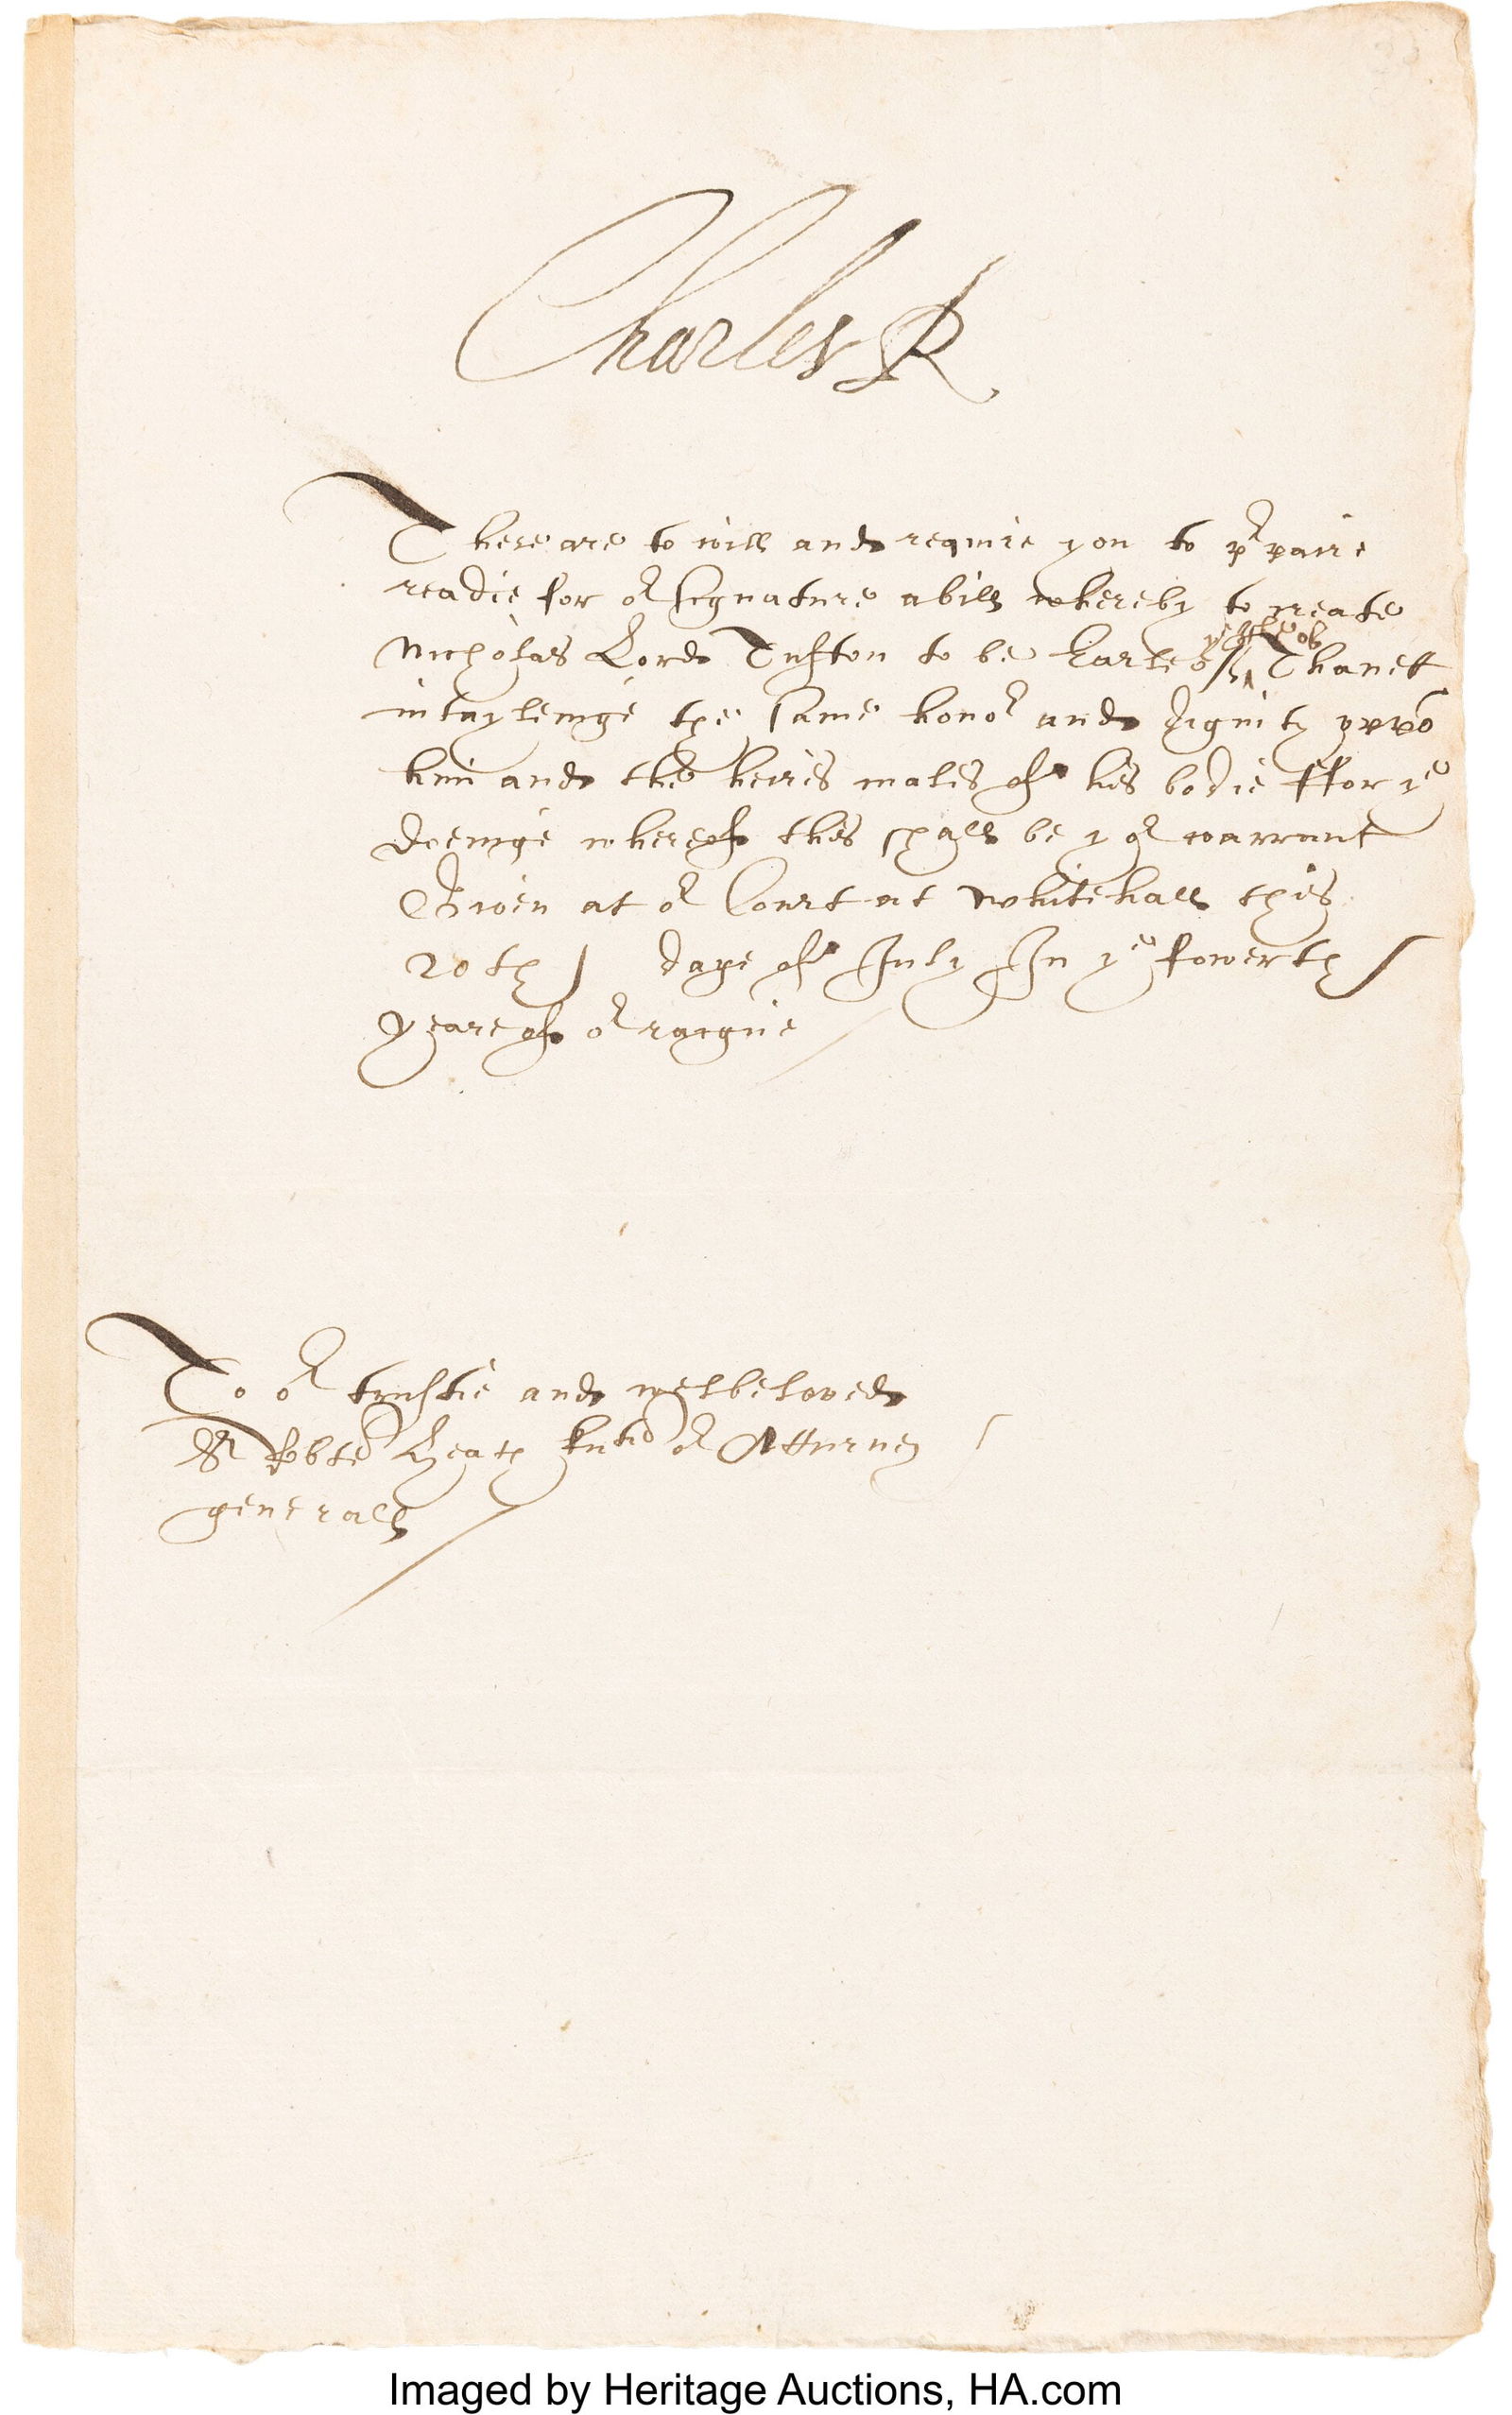 Charles R
These are to will and require you to pr paire
readie for or signature a bill whereby to create
Nicholas Lord Tufton to be Earle of Thanett
intayleinge the same honor and dignity uppo
him and the heires males of his bodie ffor ye
doeinge whereof this shall be yor warrant
Given at or Court at Whitehall this
20th daye of July In ye fowerth
yeare of or raigne
To or trustie and welbeloved
Sr Robte Heath knt or Atturney
generall
Imaged by Heritage Auctions, HA.com